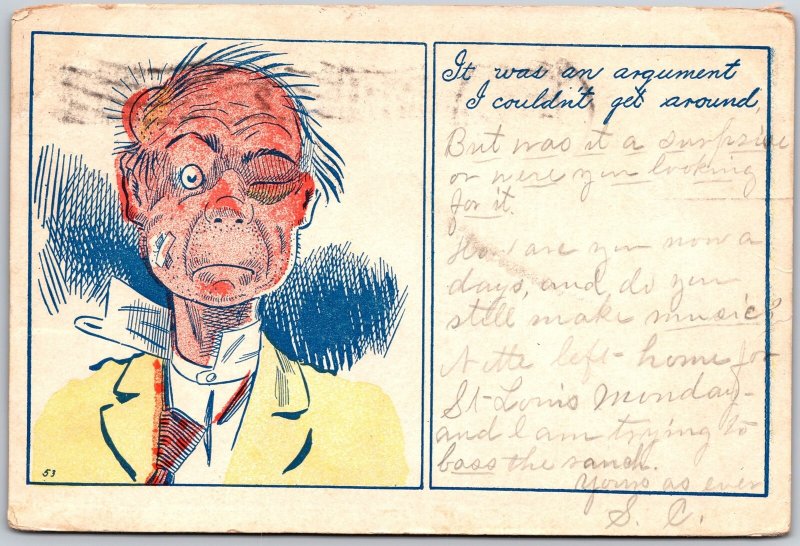 It was an argument
I couldn't get around,
But was it a surprise
or were you looking
for it.
How are you now a
days, and do you
still make music?
Nette left home for
St Louis Monday-
and I am trying to
boss the ranch.
Yours as ever
S. C.
53